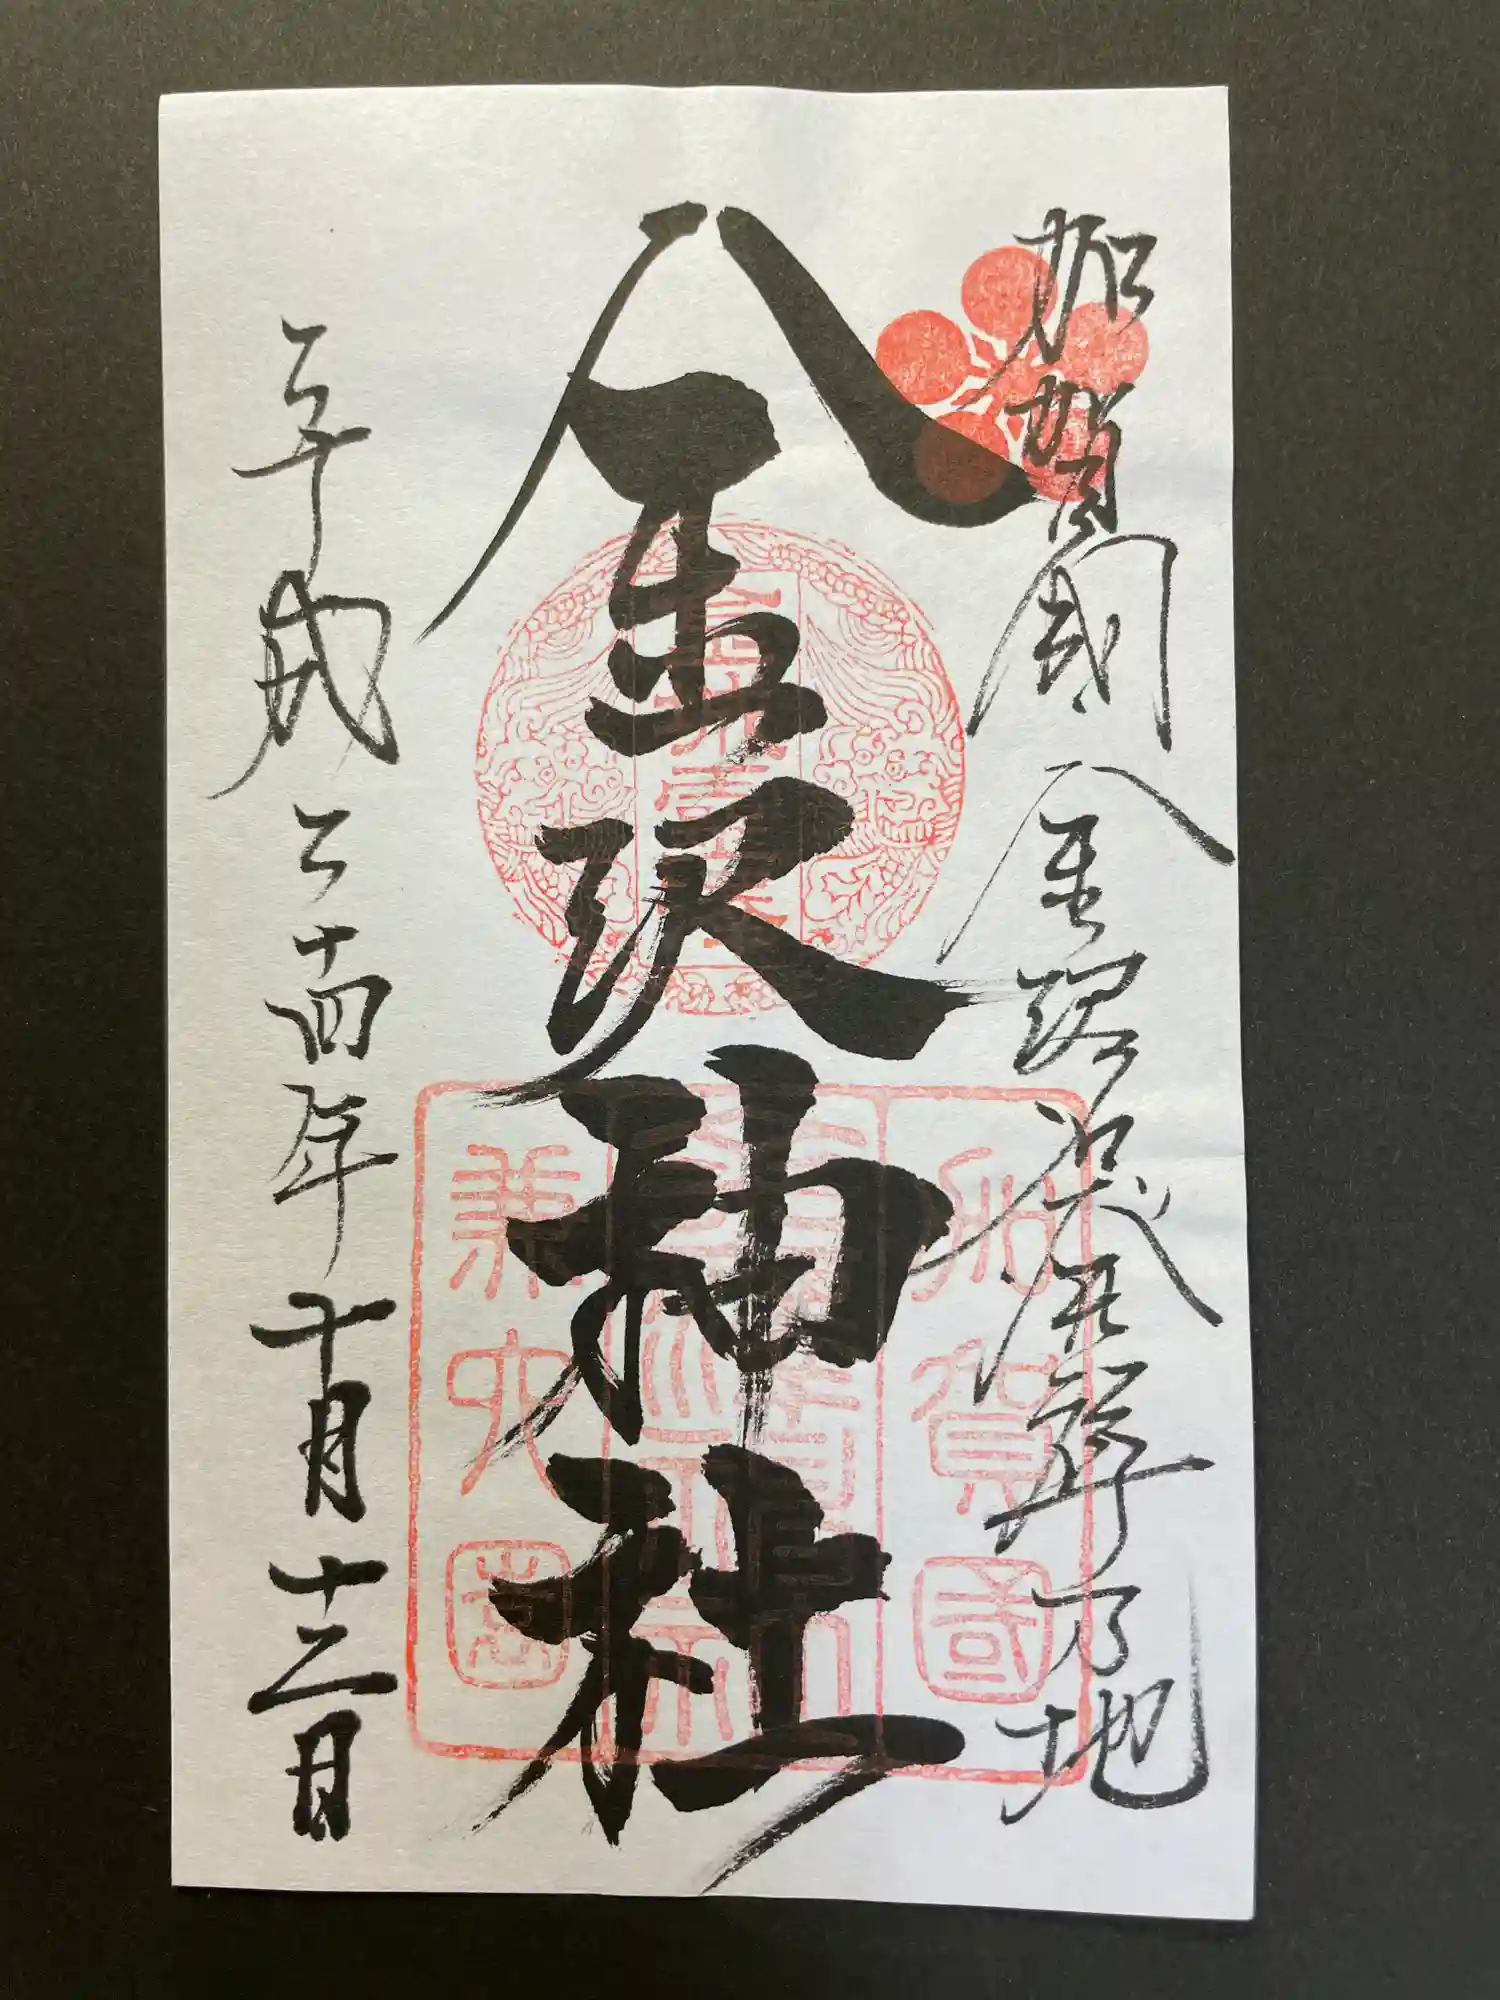 加賀國金澤發祥乃地
金沢神社
平成二十四年十月十三日
加賀國
金澤神社
兼六園